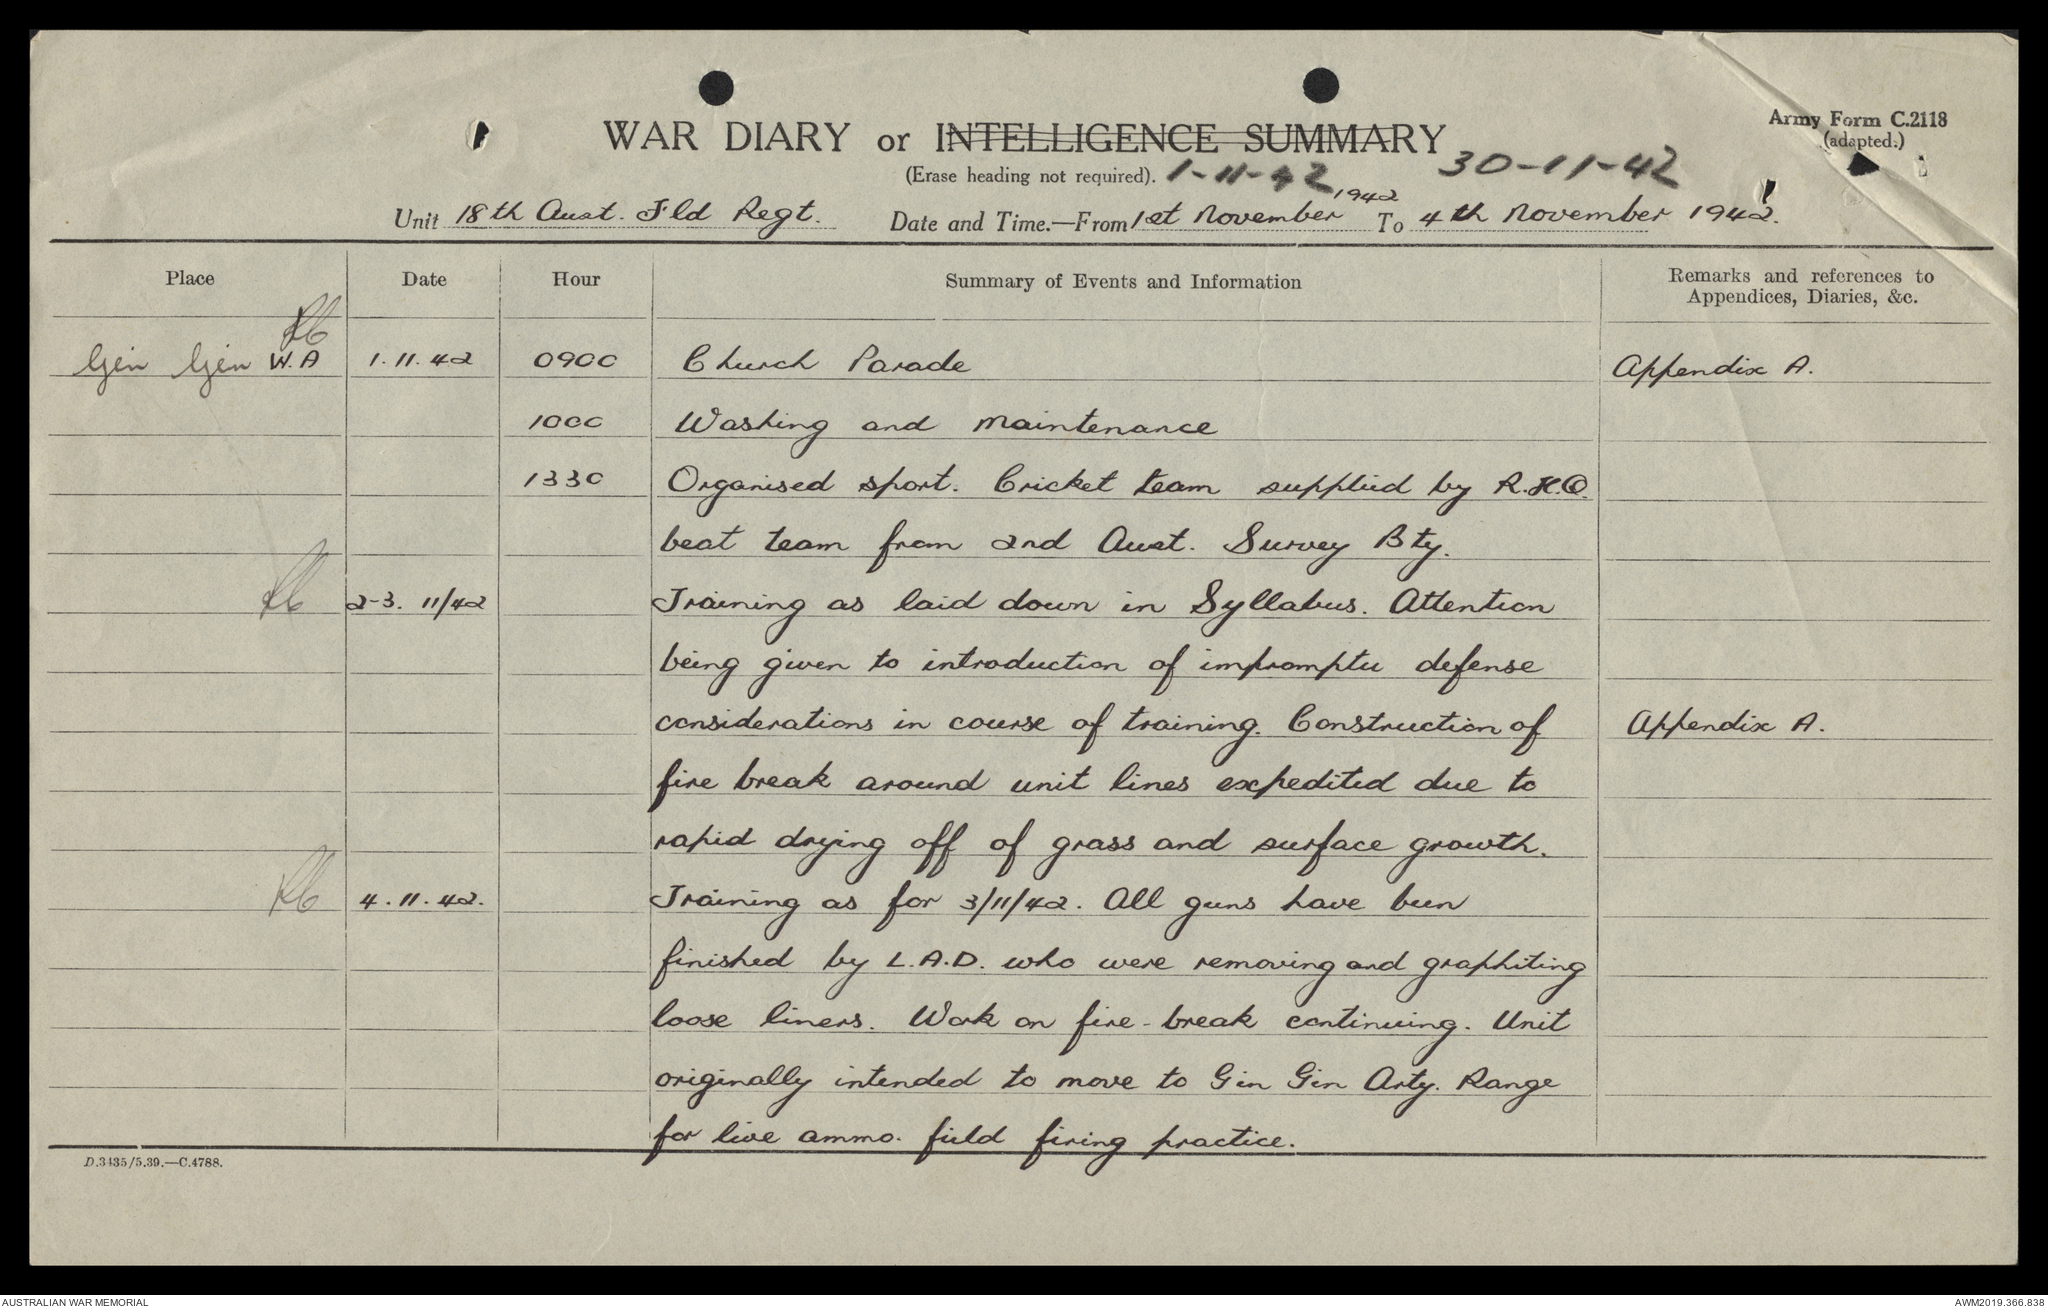 Army Form C.2118
(adapted.)
WAR DIARY or INTELLIGENCE SUMMARY
(Erase heading not required). 1-11-42 30-11-42
Unit 18th Aust. Fld Regt. Date and Time.—From 1st November 1942 To 4th November 1942.
Place Date Hour Summary of Events and Information Remarks and references to
Appendices, Diaries, &c.
Gin Gin W.A 1.11.42 0900 Church Parade Appendix A.
1000 Washing and Maintenance
1330 Organised sport. Cricket team supplied by R.H.Q.
beat team from 2nd Aust. Survey Bty.
2-3. 11/42 Training as laid down in Syllabus. Attention
being given to introduction of impromptu defense
considerations in course of training. Construction of Appendix A.
fire break around unit lines expedited due to
rapid drying off of grass and surface growth.
4.11.42. Training as for 3/11/42. All guns have been
finished by L.A.D. who were removing and graphiting
loose liners. Work on fire-break continuing. Unit
originally intended to move to Gin Gin Arty. Range
for live ammo. field firing practice.
D.3435/5.39.—C.4788.
AUSTRALIAN WAR MEMORIAL AWM2019.366.838